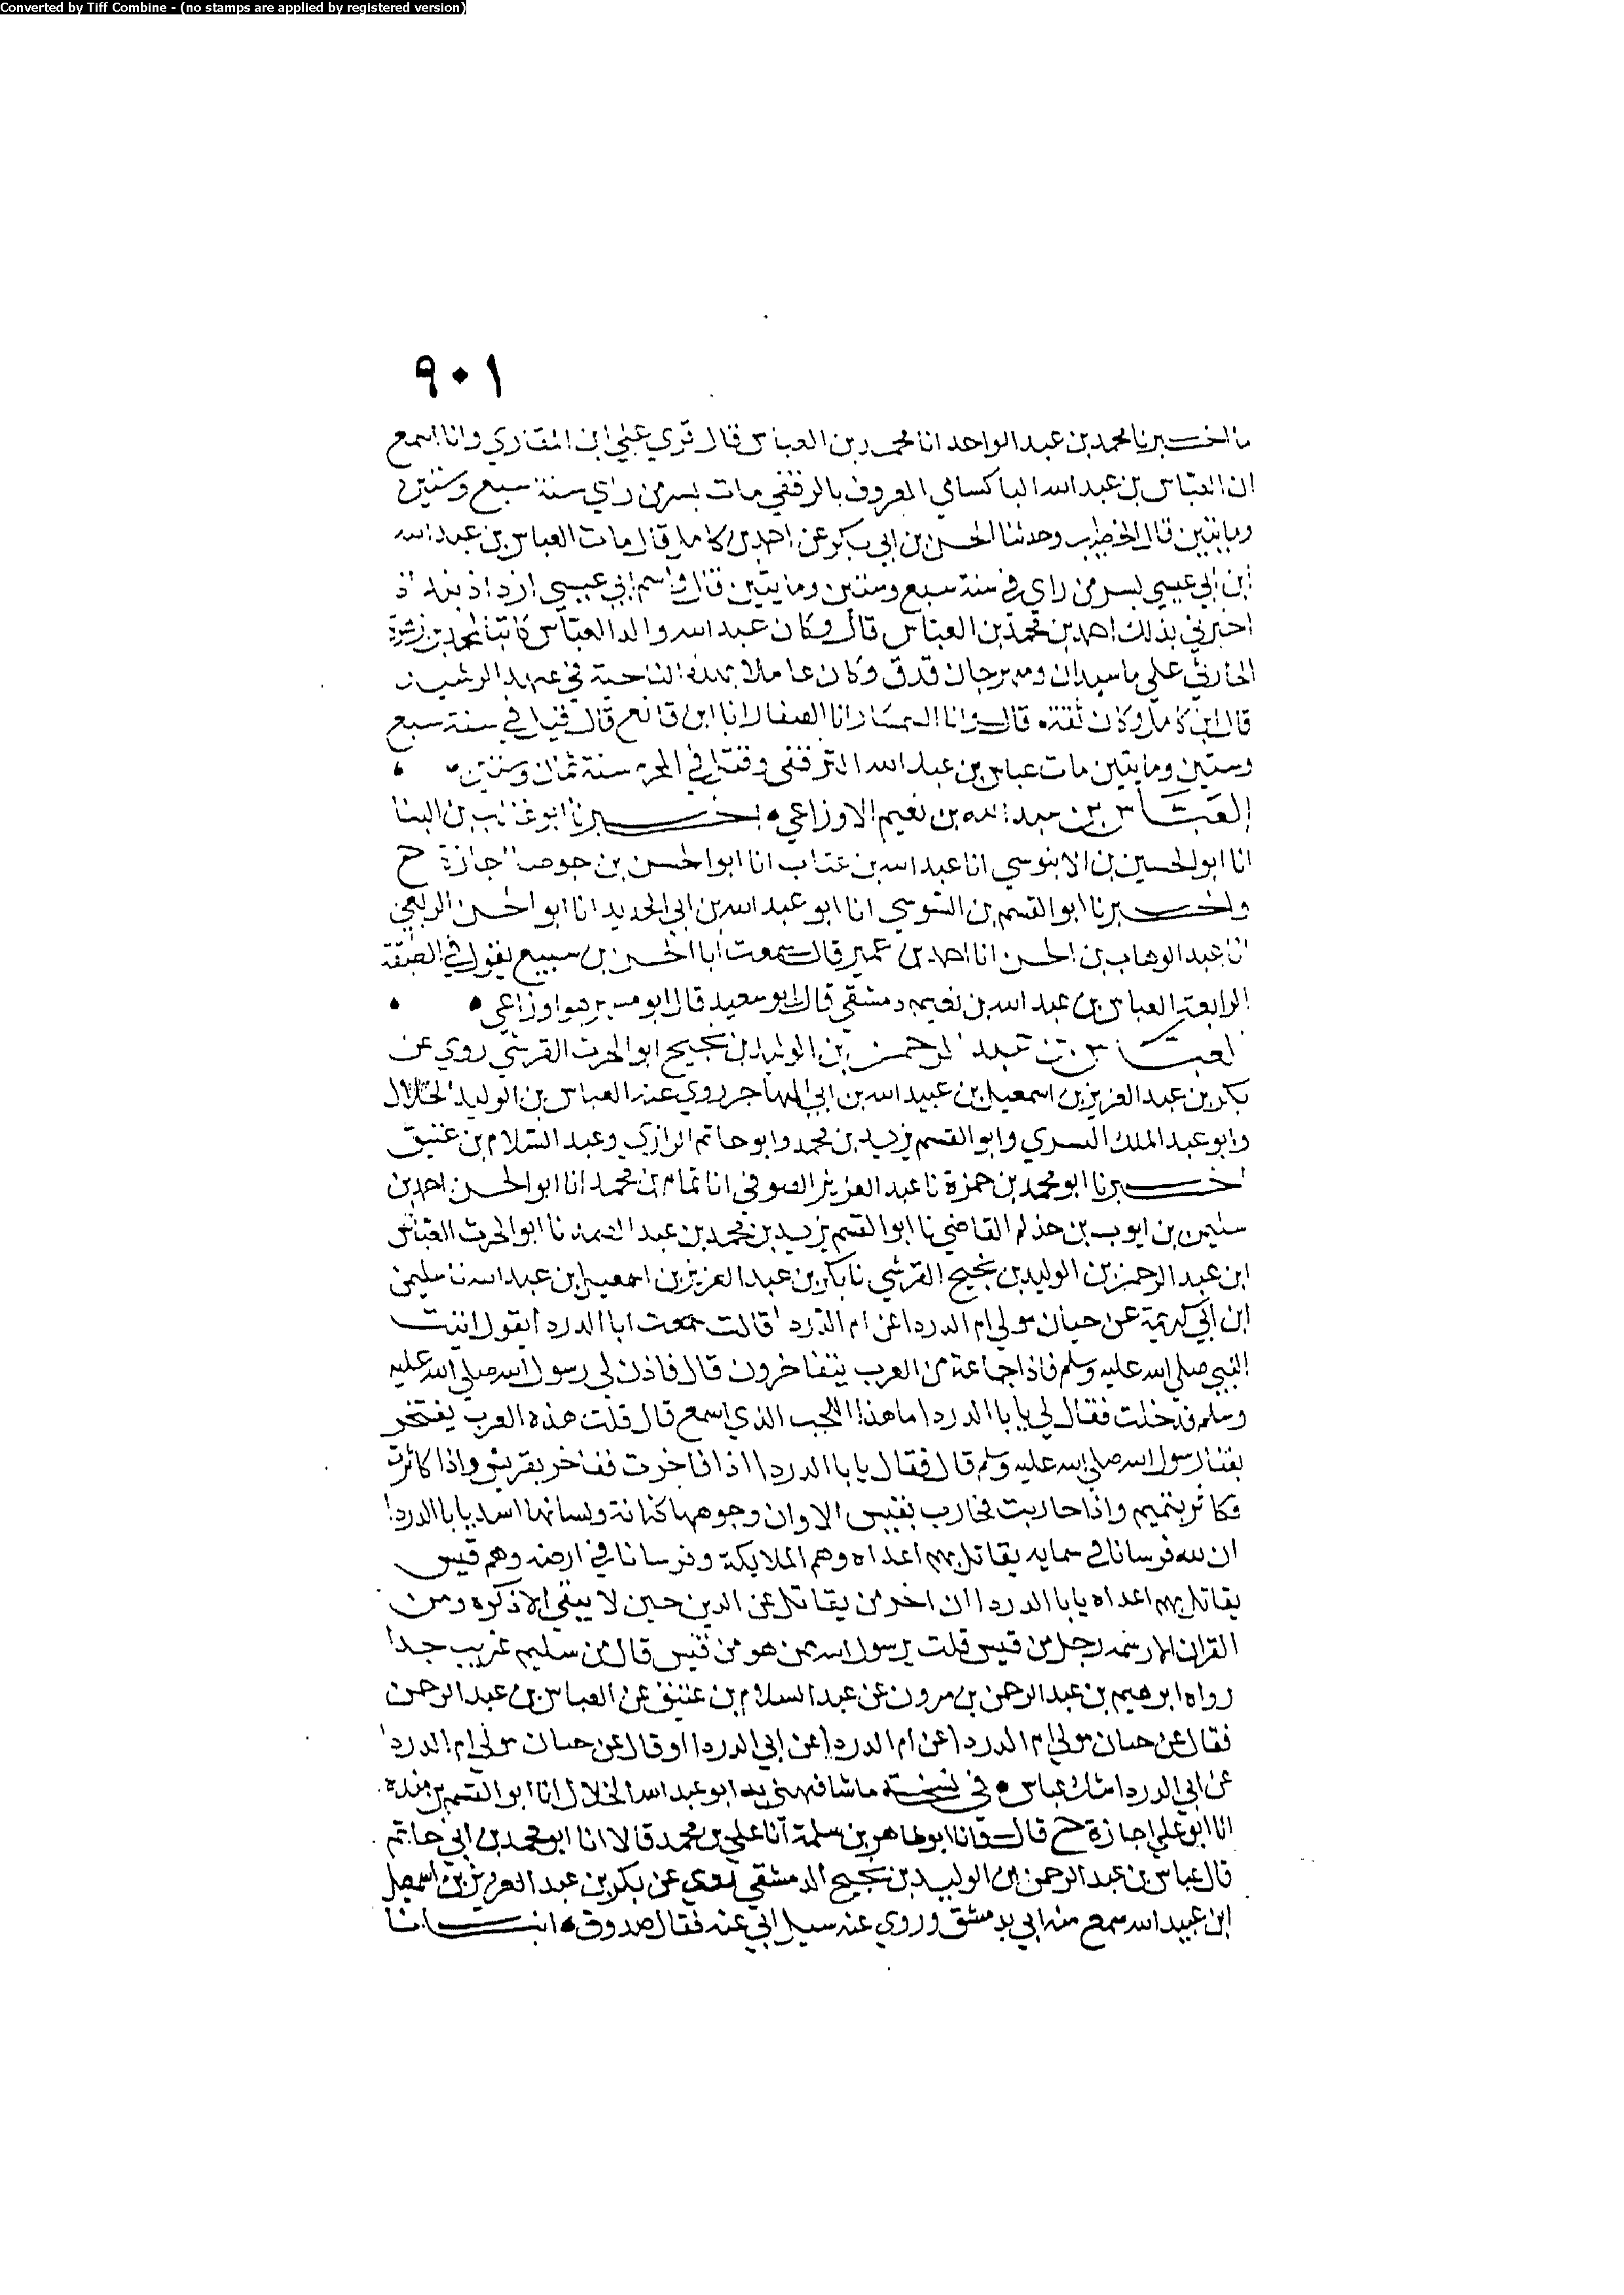 Converted by Tiff Combine - (no stamps are applied by registered version)
٩٠١
اخبرنا محمد بن عبد الواحد انا محمد بن العباس قال قري علي ابن المنادي وانا اسمع
ان العباس بن عبد الله الباكسائي المعروف بالترقفي مات بسر من راي سنة سبع وستين
ومايتين قال الخطيب وحدثنا الحسن بن ابي بكر عن احمد بن كامل قال مات العباس بن عبد الله
ابن ابي عيسي بسر من راي في سنة سبع وستين ومايتين قال واسم ابي عيسي ازداذ بنداذ
اخبرني بذلك احمد بن محمد بن العباس قال وكان عبد الله والد العباس كاتبا لمحمد بن
الحارثي علي ماسبدان ومهرجان قدق وكان عاملا بهذه الناحية في عهد الرشيد
قال ابن كامل وكان ثقة قال وانا السمسار انا الصفار انا ابن قانع قال فيها في سنة سبع
وستين ومايتين مات عباس بن عبد الله الترقفي وقتل في المحرم سنة ثمان وستين
العباس بن عبد الله بن نعيم الاوزاعي اخبرنا ابو غالب بن البنا
انا ابو الحسين بن الابنوسي انا عبد الله بن عتاب انا ابو الحسن بن جوصا اجازة ح
واخبرنا ابو القسم بن السوسي انا ابو عبد الله بن ابي الحديد انا ابو الحسن الربعي
انا عبد الوهاب بن الحسن انا احمد بن عمير قال سمعت ابا الحسن بن سميع يقول في الطبقة
الرابعة العباس بن عبد الله بن نعيم دمشقي قال ابو سعيد قال ابو مسهر هو اوزاعي
العباس بن عبد الرحمن بن الوليد بن نجيح ابو الحرث القرشي روي عن
بكر بن عبد العزيز بن اسمعيل بن عبيد الله بن ابي المهاجر روي عنه العباس بن الوليد الخلال
وابو عبد الملك البسري وابو القسم يزيد بن محمد وابو حاتم الرازي وعبد السلام بن عتيق
اخبرنا ابو محمد بن حمزة نا عبد العزيز الصوفي انا تمام بن محمد انا ابو الحسن احمد بن
سليمن بن ايوب بن حذلم القاضي نا ابو القسم يزيد بن محمد بن عبد الصمد نا ابو الحرث العباس
ابن عبد الرحمن بن الوليد بن نجيح القرشي نا بكر بن عبد العزيز بن اسمعيل بن عبد الله نا سليمن
ابن ابي كريمة عن حيان مولي ام الدردا عن ام الدردا قالت سمعت ابا الدردا يقول اتيت
النبي صلي الله عليه وسلم فاذا جماعة من العرب يتفاخرون قال فاذن لي رسول الله صلي الله عليه
وسلم فدخلت فقال لي يابا الدردا ما هذا اللجب الذي اسمع قال قلت هذه العرب يفتخر
بفنا رسول الله صلي الله عليه وسلم قال فقال يابا الدردا اذا فاخرت ففاخر بقريش واذا كاثرت
فكاثر بتميم واذا حاربت فحارب بقيس الا وان وجوهها كنانة ولسانها اسد يابا الدردا
ان لله فرسانا في سمايه يقاتل بهم اعداه وهم الملايكة وفرسانا في ارضه وهم قيس
يقاتل بهم اعداه يابا الدردا ان اخر من يقاتل عن الدين حين لا يبقي الا ذكره ومن
القران الا رسمه رجل من قيس قلت يرسول الله ممن هو من قيس قال من سليم غريب جدا
رواه ابرهيم بن عبد الرحمن بن مرون عن عبد السلام بن عتيق عن العباس بن عبد الرحمن
فقال عن حسان مولي ام الدردا عن ام الدردا عن ابي الدردا او قال عن حسان مولي ام الدردا
عن ابي الدردا شك عباس في نسخة ما شافهني به ابو عبد الله الخلال انا ابو القسم بن منده
انا ابو علي اجازة ح قال وانا ابو طاهر بن سلمة انا علي بن محمد قالا انا ابو محمد بن ابي حاتم
قال عباس بن عبد الرحمن بن الوليد بن نجيح الدمشقي روي عن بكر بن عبد العزيز بن اسمعيل
ابن عبيد الله سمع منه ابي بدمشق وروي عنه سيل ابي عنه فقال صدوق انبانا